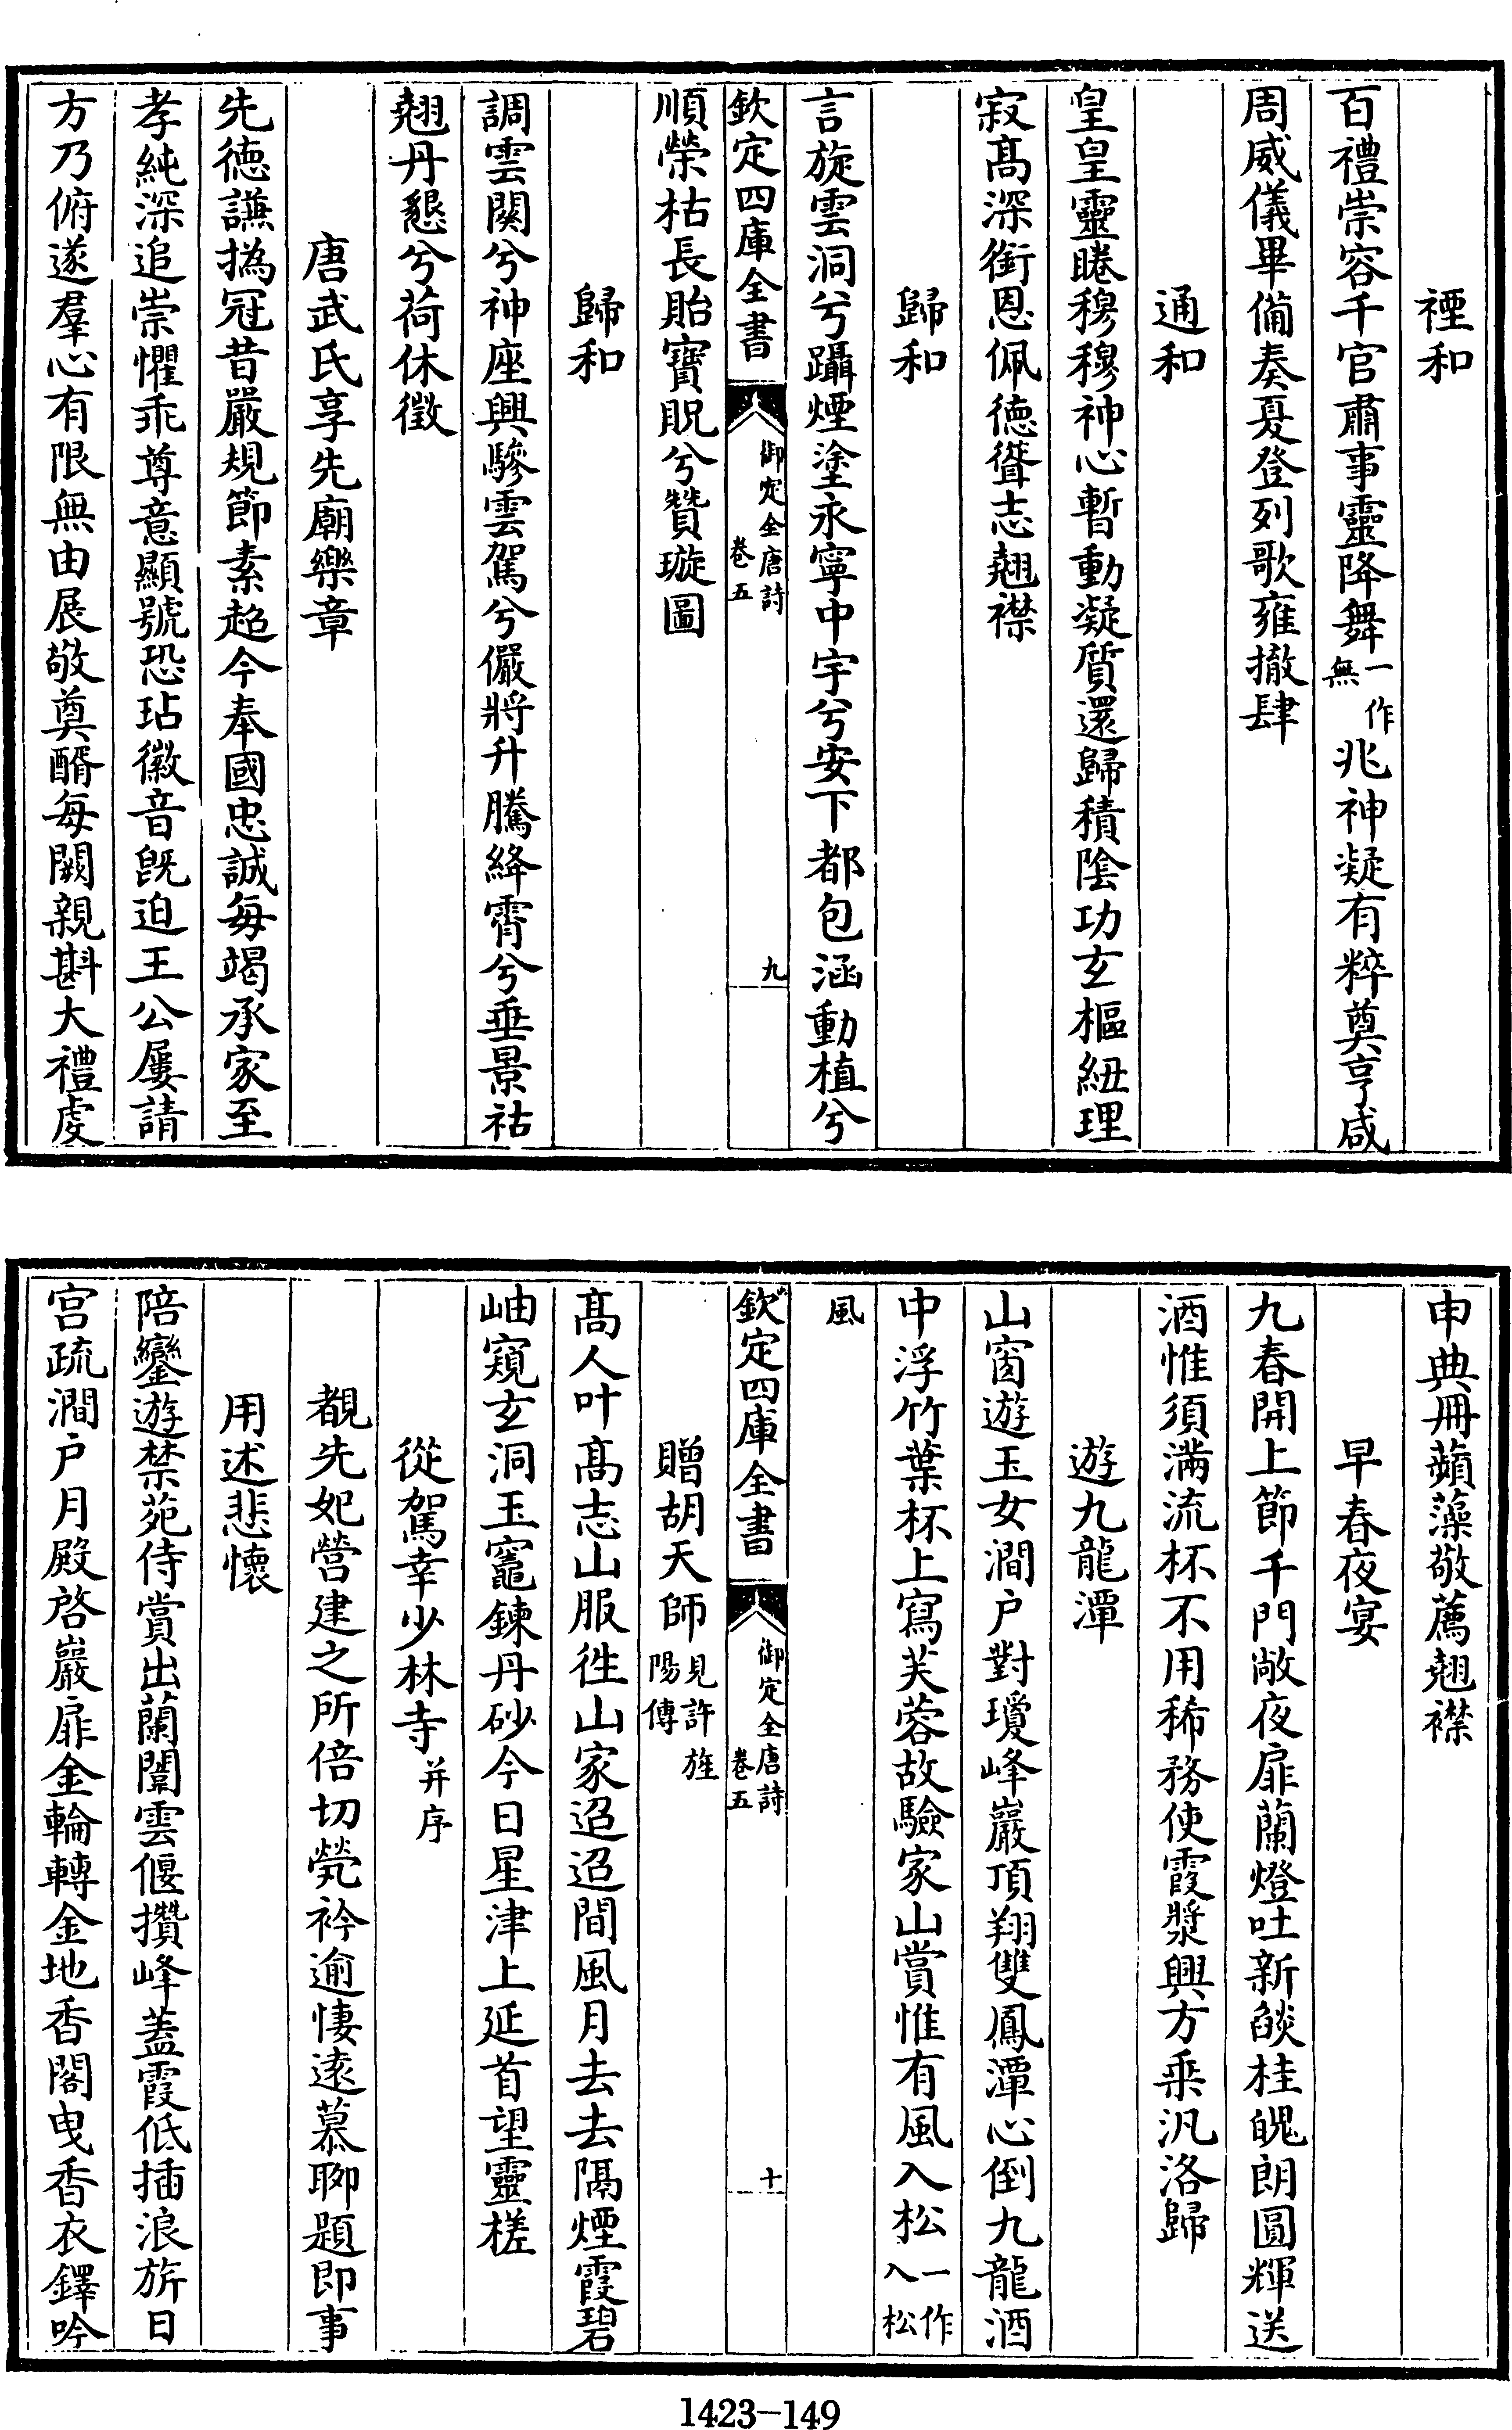 禋和
百禮崇容千官肅事靈降舞一作無兆神凝有粹奠亨咸
周威儀畢備奏夏登列歌雍撤肆
通和
皇皇靈睠穆穆神心暫動凝質還歸積陰功玄樞紐理
寂髙深銜恩佩德聳志翹襟
歸和
言旋雲洞兮躡煙塗永寧中宇兮安下都包涵動植兮
欽定四庫全書
御定全唐詩
卷五
九
順榮枯長貽寶貺兮贊璇圖
歸和
調雲闋兮神座興驂雲駕兮儼將升騰絳霄兮垂景祜
翹丹懇兮荷休徵
唐武氏享先廟樂章
先德謙撝冠昔嚴規節素超今奉國忠誠每竭承家至
孝純深追崇懼乖尊意顯號恐玷徽音旣迫王公屢請
方乃俯遂羣心有限無由展敬奠醑每闕親斟大禮虔
申典冊蘋藻敬薦翹襟
早春夜宴
九春開上節千門敞夜扉蘭燈吐新燄桂魄朗圓輝送
酒惟須滿流杯不用稀務使霞漿興方乗汎洛歸
遊九龍潭
山窗遊玉女澗户對瓊峰巖頂翔雙鳳潭心倒九龍酒
中浮竹葉杯上寫芙蓉故驗家山賞惟有風入松一作入松
風
欽定四庫全書
御定全唐詩
卷五
十
贈胡天師見許旌陽傳
髙人叶髙志山服徃山家迢迢間風月去去隔煙霞碧
岫窺玄洞玉竈鍊丹砂今日星津上延首望靈槎
從駕幸少林寺并序
覩先妃營建之所倍切煢衿逾悽逺慕聊題即事
用述悲懷
陪鑾遊禁苑侍賞出蘭闈雲偃攢峰蓋霞低插浪旂日
宫疏澗户月殿啓巖扉金輪轉金地香閣曳香衣鐸吟
1423-149